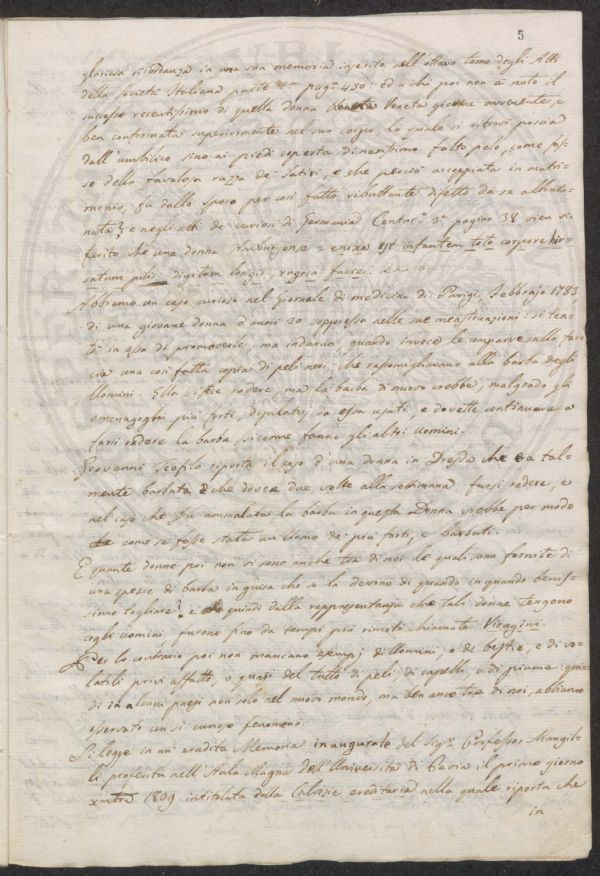 5
gloriosa ricordanza in una sua memoria inserita nell'ottavo tomo degli Atti
della Società Italiana parte pag.e 450: ed a chi poi non è noto il
successo recentissimo di quella donna Veneta giovane avvenente, e
ben conformata superiormente nel suo corpo, la quale si ritrovò poscia
dall'umbilico sino ai piedi coperta di nerissimo folto pelo, come fos-
se della favolosa razza de' Satiri, e che perciò accoppiata in matri-
monio, fu dallo sposo per così fatto ributtante difetto da se allonta-
nata? e negli atti de' curiosi di Germania Centur.a 3.a pagina 38 vien ri-
ferito che una donna = enixa est infantem toto corpore hir-
sutum pilis digitum longis, rugosa facie.
Abbiamo un caso curioso nel Giornale di medicina di Parigi, Febbrajo 1783
di una giovane donna d'anni 20 soppressa nelle sue menstruazioni: si ten-
tò in essa di promoverle, ma indarno, quando invece le comparve sulla fac-
cia una così fatta copia di peli neri, che rassomigliavano alla barba degli
Uomini. Ella si fece radere, ma la barba di nuovo crebbe, malgrado gli
emenagoghi più forti, depilatorj da essa usati, e dovette continuare a
farsi radere la barba, siccome fanno gli altri Uomini.
Giovanni Teofilo riporta il caso d'una donna in Dresda che era tal-
mente barbata che dovea due volte alla settimana farsi radere, e
nel caso che fu ammalata: la barba in questa Donna crebbe per modo
come se fosse stata un Uomo de' più forti, e barbuti.
E quante donne poi non vi sono anche tra di noi le quali sono fornite di
una spezie di barba in guisa che se la devono di quando in quando benis-
simo tagliare? e quindi dalla rappresentanza che tali donne tengono
cogli uomini furono fino da tempi più rimoti chiamate Viragini.
Per lo contrario poi non mancano esempj di Uomini, e di bestie, e di vo-
latili privi affatto, o quasi del tutto di peli, di capelli, e di piume: quin-
di in alcuni paesi non solo nel nuovo mondo, ma ben anco tra di noi, abbiamo
osservato un sì curioso fenomeno.
Si legge in un' erudita Memoria inaugurale del Sig.r Professor Mangil-
li proferita nell'Aula Magna dell'Università di Pavia il primo giorno
xmbre 1809 intitolata della Calvizie ereditaria nella quale riporta che
in